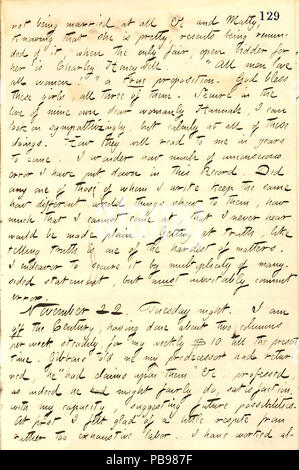 129
not being married at all. Et and Matty
knowing that she is pretty resents being remin-
ded of it, when the only fair, open bidder for
her is Charley Honeywell. "All men love
all women" is a true proposition. God bless
these girls, all three of them. Secure in the
love of mine own dear womanly Hannah, I can
look on sympathizingly but calmly at all of these
doings. How they will read to me in years
to come. I wonder how much of unconscious
error I have put down in this Record. Did
any one of those of whom I write keep the same
how different would things show to them, how
much that I cannot that I never hear
would be made plain. Getting at truth, like
telling truth is one of the hardest of matters.
I endeavor to secure it by multiplicity of many-
sided statement, but must inevitably commit
error.
November 22. Tuesday night. I am
off the Century, having done about two columns
per week steadily, for my weekly $10 till the present
time. Gibbons told me my predecessor had retur-
red, he "had claims upon them" &c, professed
as indeed he had might fairly do, satisfaction,
with my capacity, suggesting future possibilities.
At first I felt glad of a little respite from
rather too exhaustive labor. I have worked al-
alamy
Image ID: PB987F
www.alamy.com